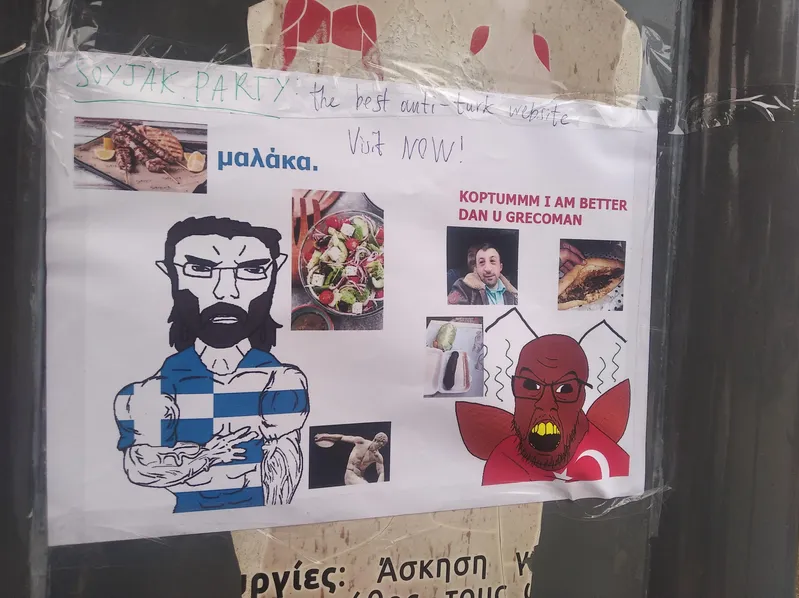 SOYJAK.PARTY: the best anti-turk website
Visit NOW!
μαλάκα.
KOPTUMMM I AM BETTER
DAN U GRECOMAN
υργίες: Άσκηση
τους